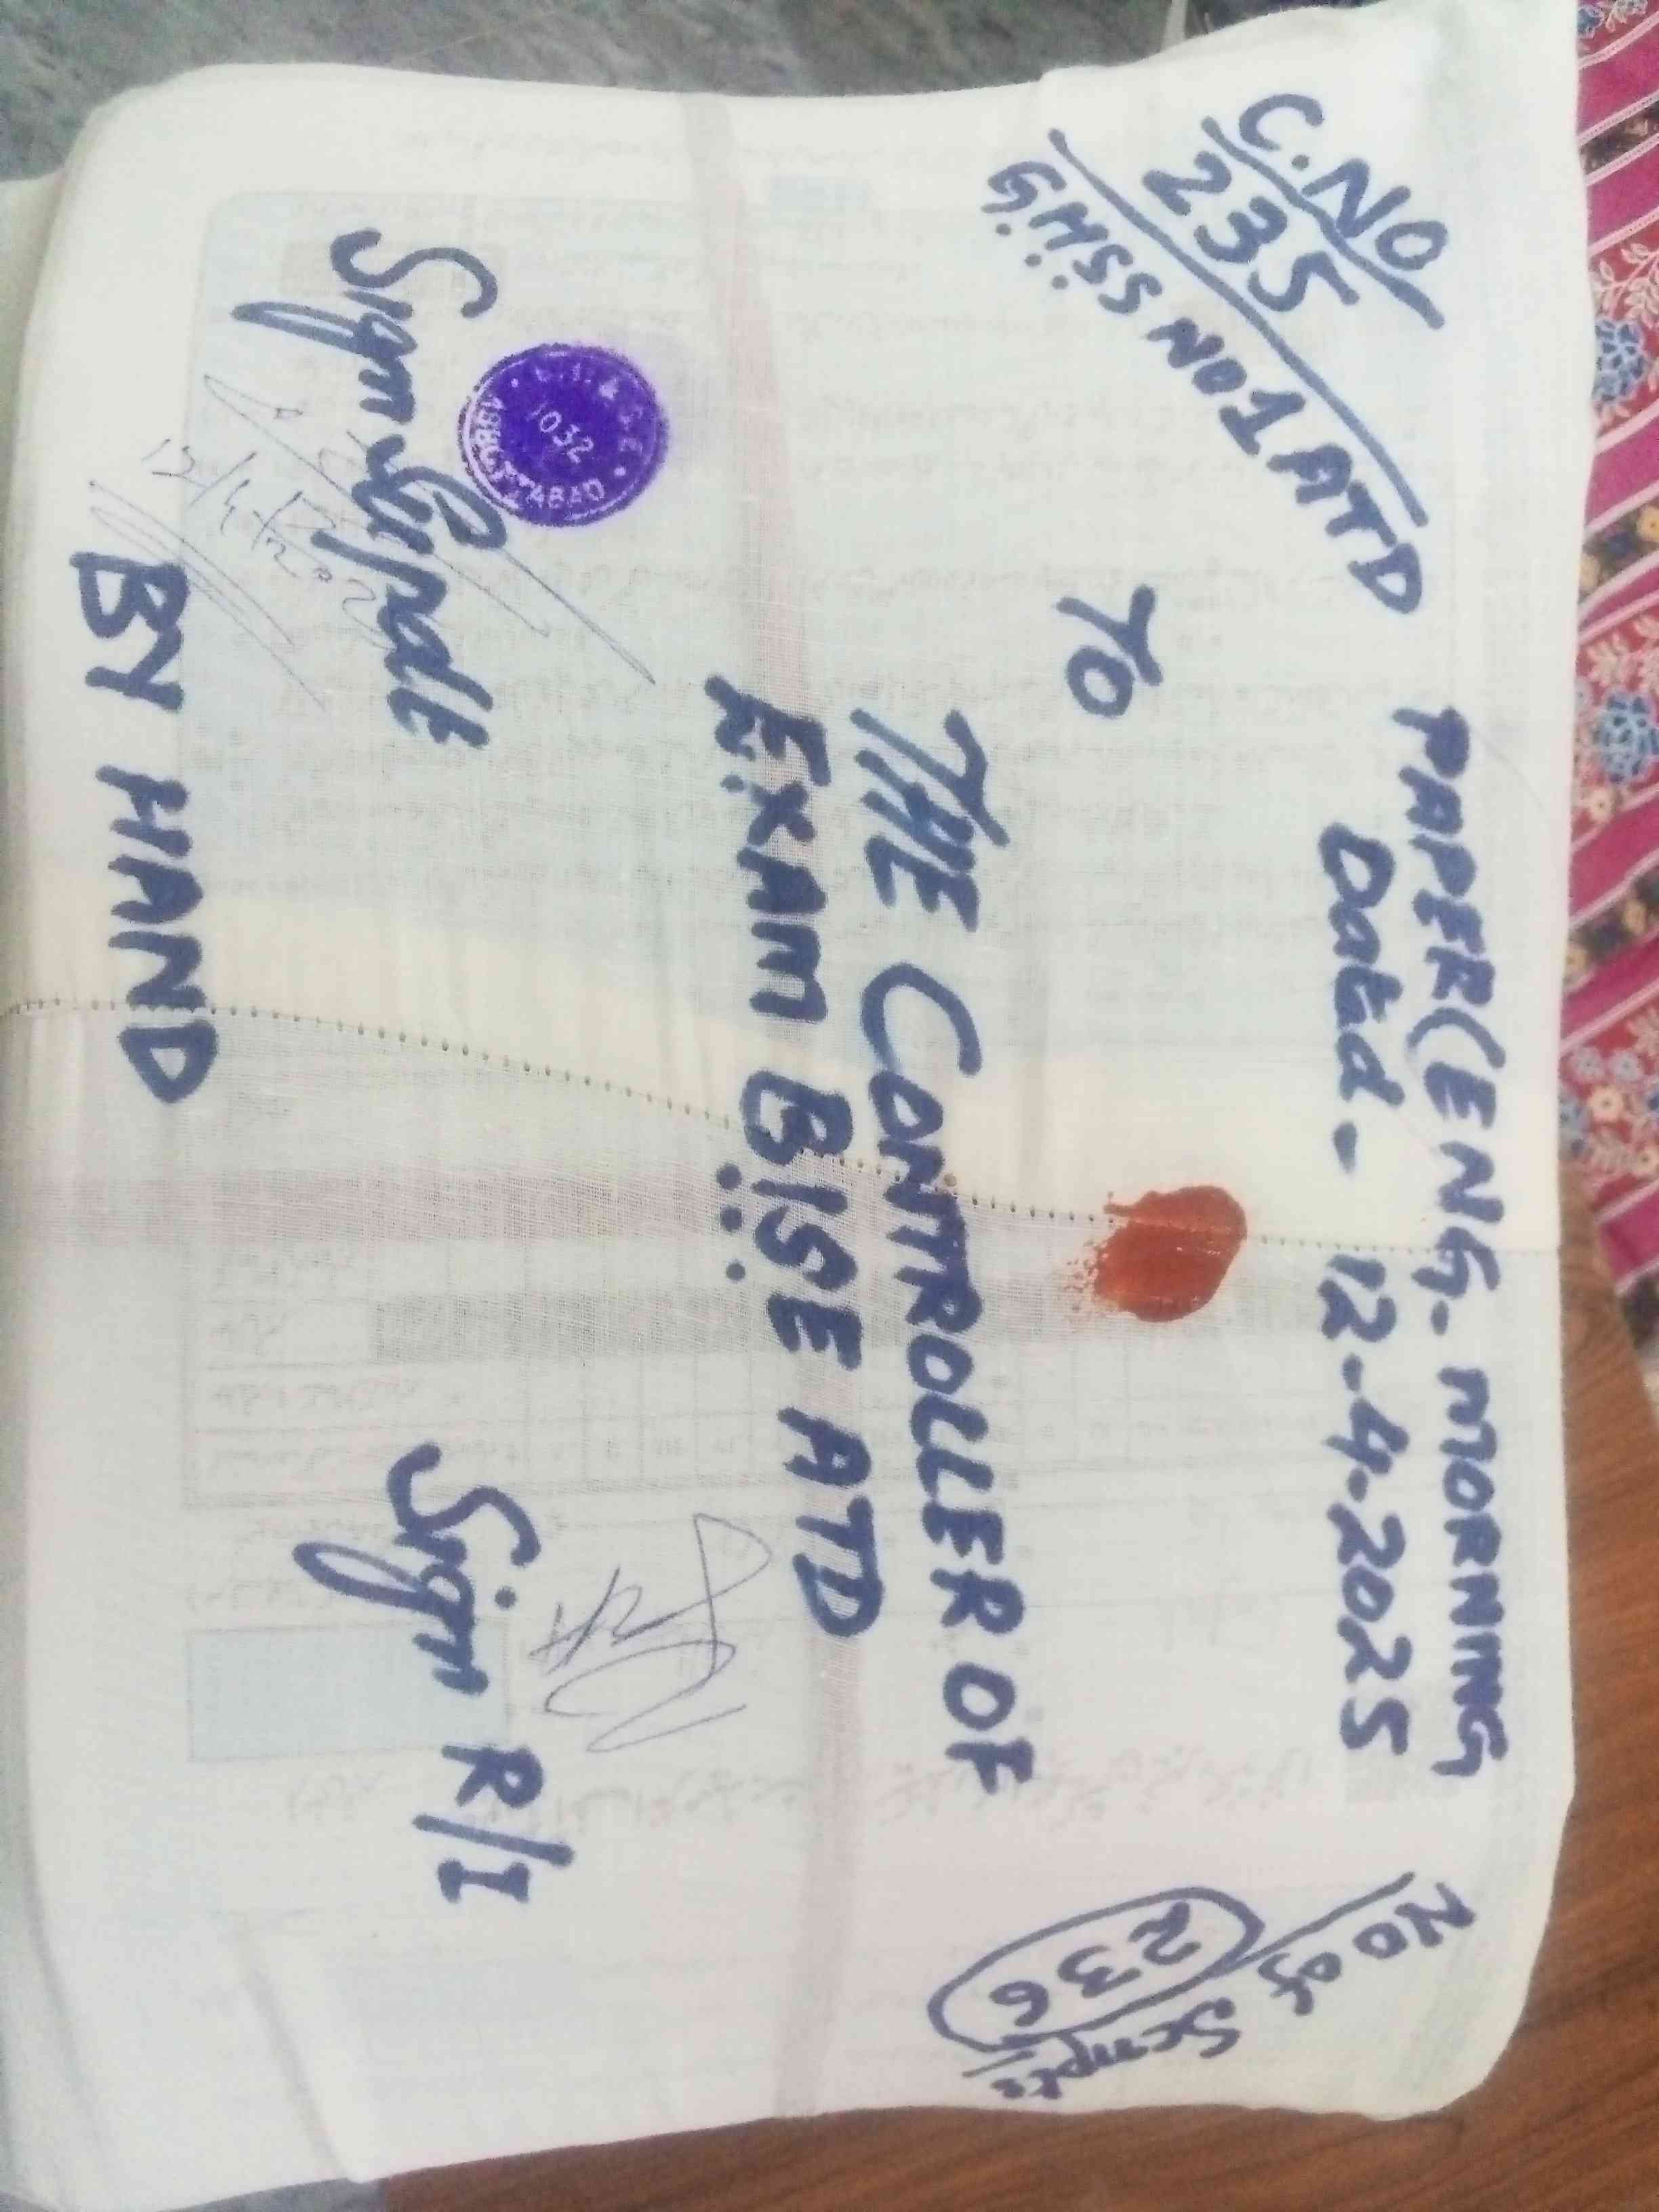 C.NO
235
GHSS NO1 ATD
PAPER (ENG. MORNING
Dated - 12-4-2025
NO of Scripts
236
TO
THE CONTROLLER OF
EXAM BISE ATD
1032
ABBOTTABAD
Sign Supdt
Sign R/I
BY HAND